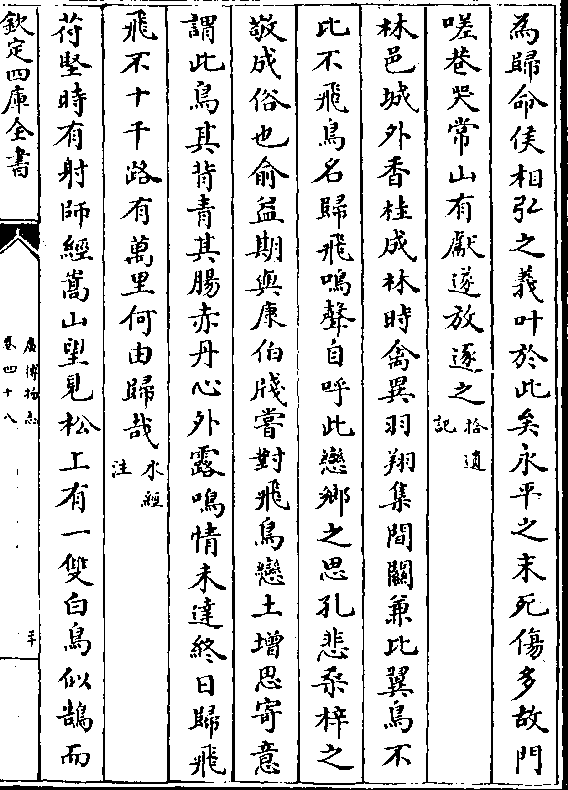 為歸命侯相弘之義叶於此矣永平之末死傷多故門
嗟巷哭常山有獻遂放逐之拾遺記
林邑城外香桂成林時禽異羽翔集間關兼比翼鳥不
比不飛鳥名歸飛鳴聲自呼此戀鄉之思孔悲桑梓之
敬成俗也俞益期與康伯牋嘗對飛鳥戀土增思寄意
謂此鳥其背青其腸赤丹心外露鳴情未達終日歸飛
飛不十千路有萬里何由歸哉水經注
苻堅時有射師經嵩山望見松上有一雙白鳥似鵠而
欽定四庫全書
廣博物志
卷四十八